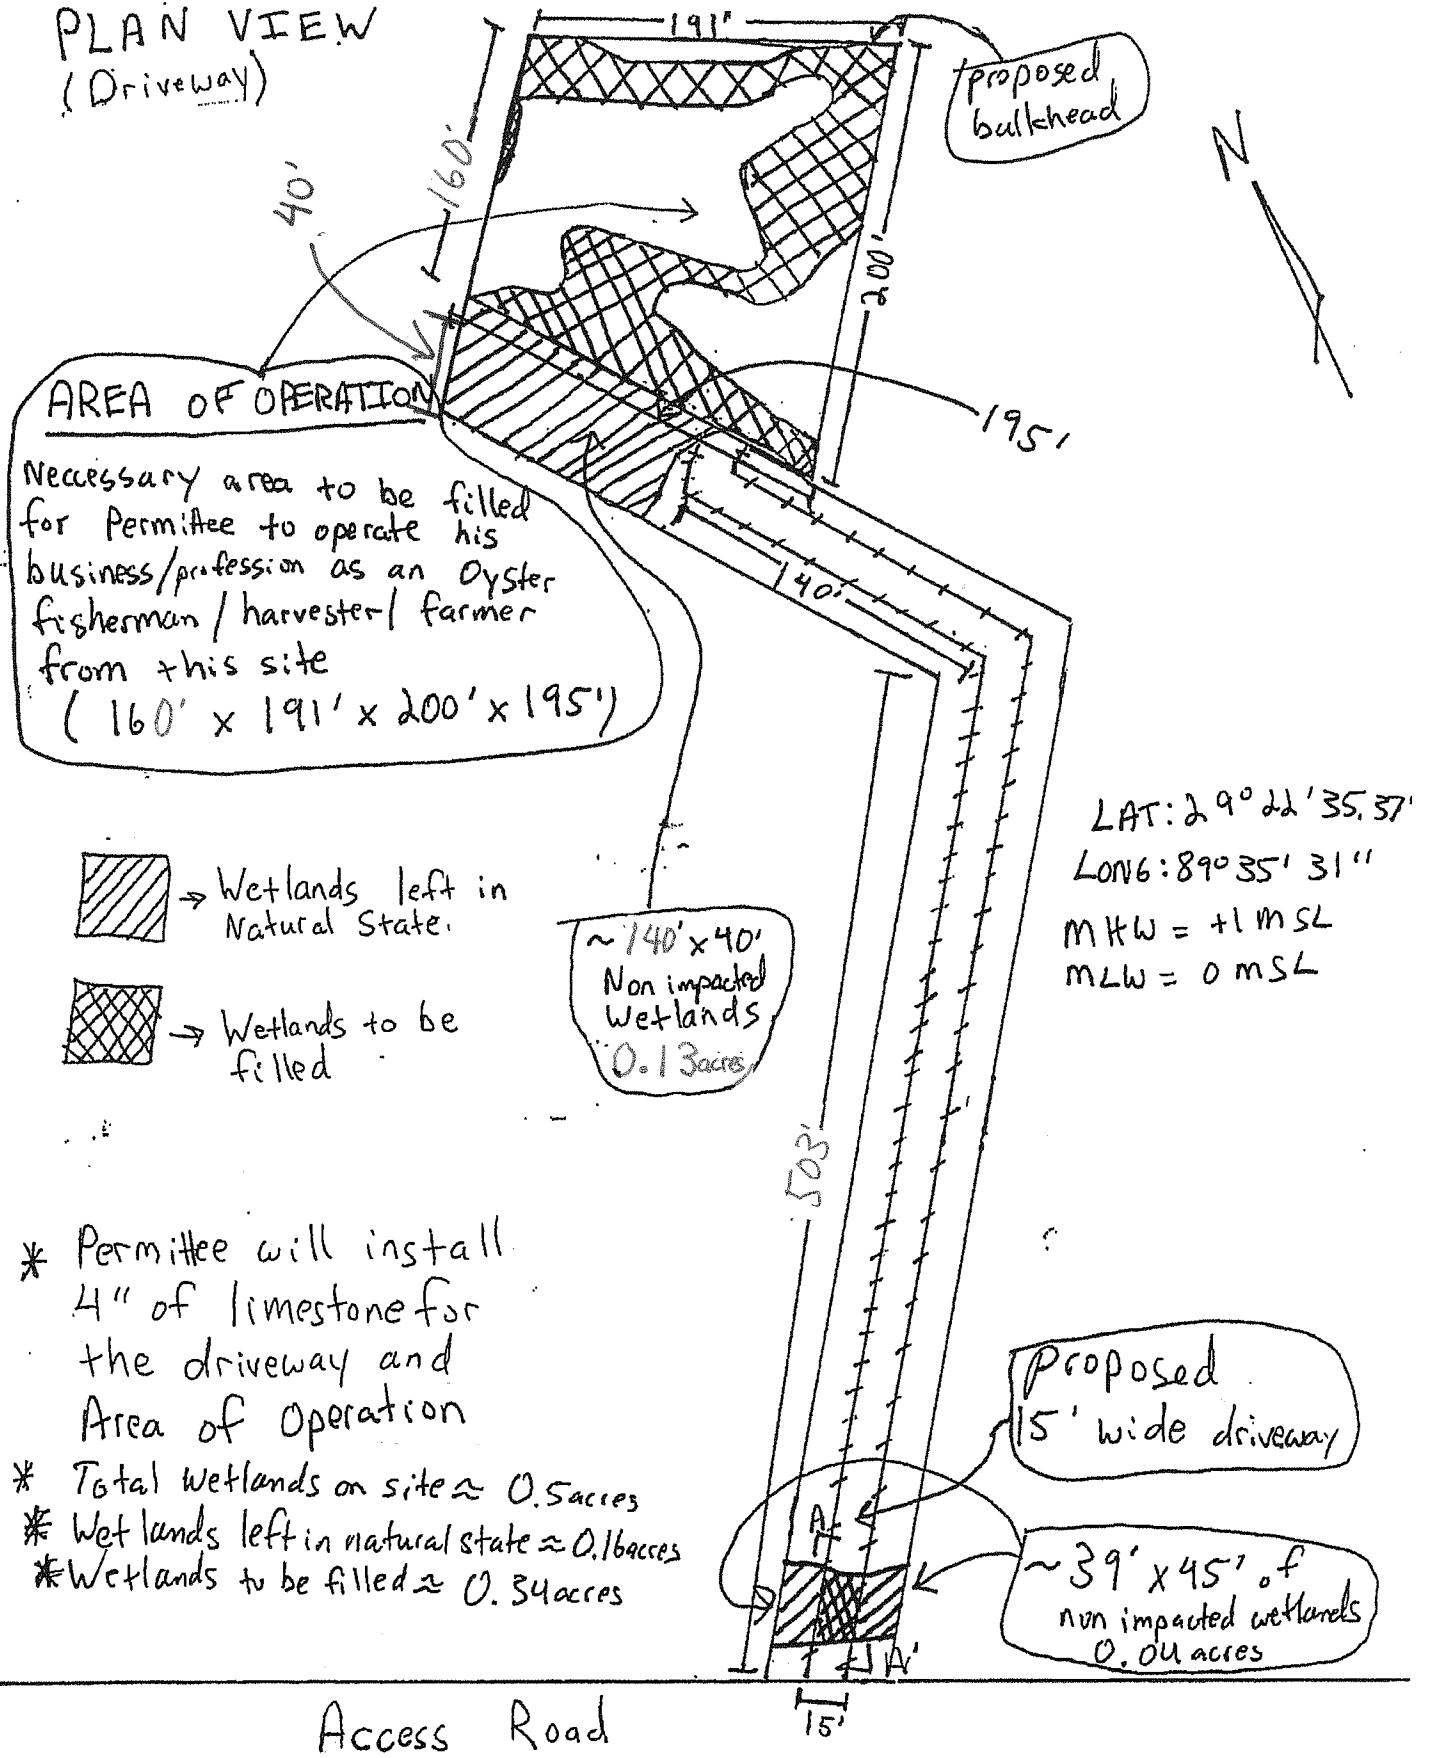 PLAN VIEW
(Driveway)
191'
proposed
bulkhead
N
160'
40'
200'
195'
AREA OF OPERATION
Neccessary area to be filled
for Permittee to operate his
business/profession as an Oyster
fisherman/harvester/farmer
from this site
(160' x 191' x 200' x 195')
140'
503'
LAT: 29° 22' 35.37'
LONG: 89° 35' 31"
MHW = +1 MSL
MLW = 0 MSL
→ Wetlands left in
Natural State.
→ Wetlands to be
filled
~ 140' x 40'
Non impacted
Wetlands
0.13 acres
* Permittee will install
4" of limestone for
the driveway and
Area of Operation
* Total wetlands on site ≈ 0.5 acres
* Wetlands left in natural state ≈ 0.16 acres
* Wetlands to be filled ≈ 0.34 acres
Proposed
15' wide driveway
A
A'
~ 39' x 45' of
non impacted wetlands
0.04 acres
15'
Access Road